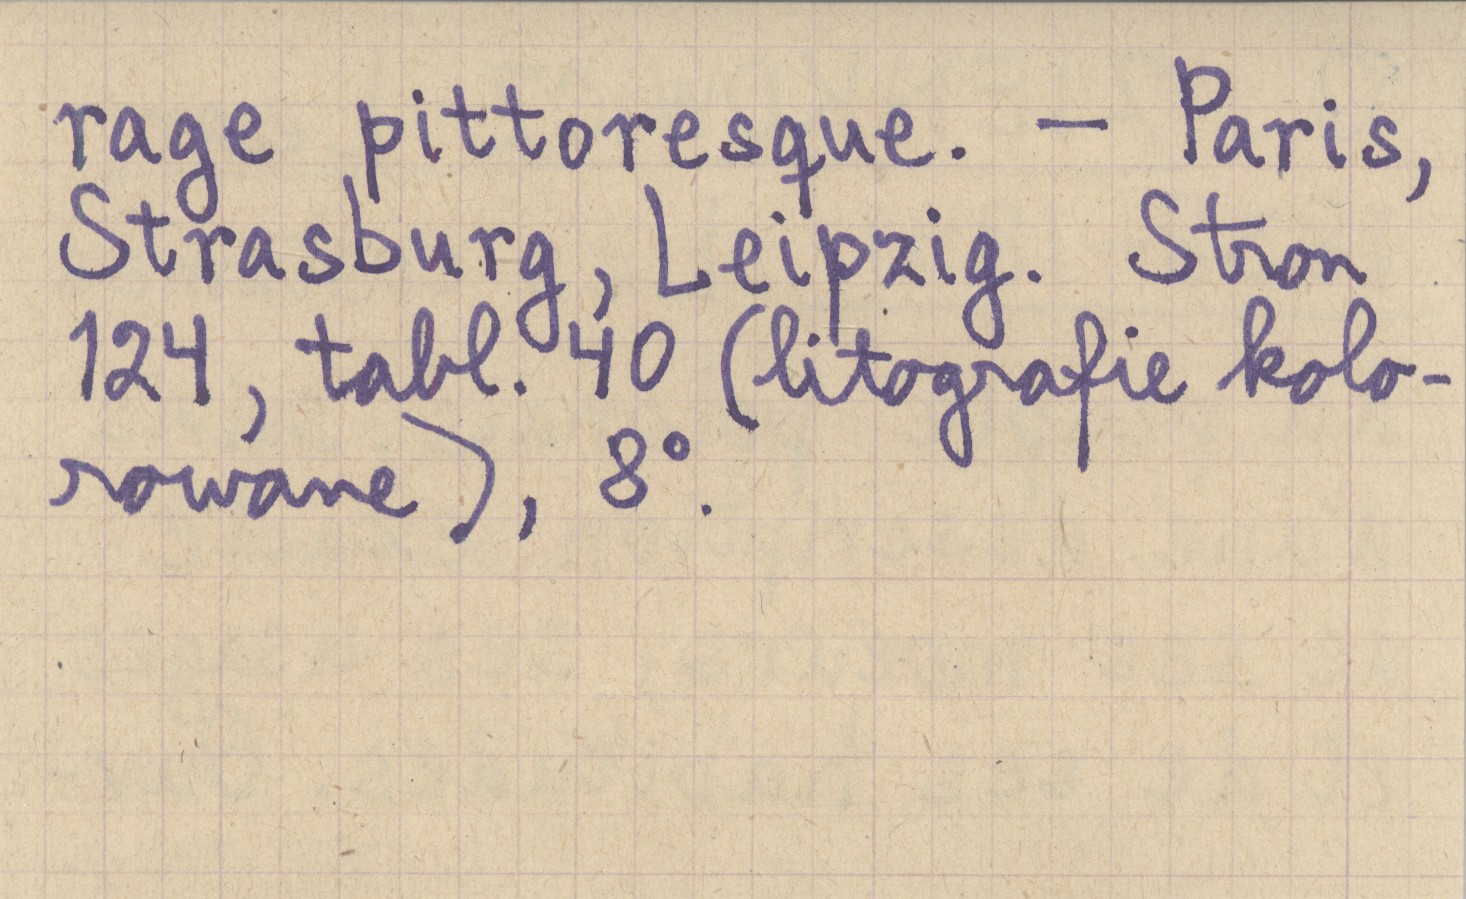 rage pittoresque. — Paris,
Strasburg, Leipzig. Stron
124, tabl. 40 (litografie kolo-
rowane), 8°.